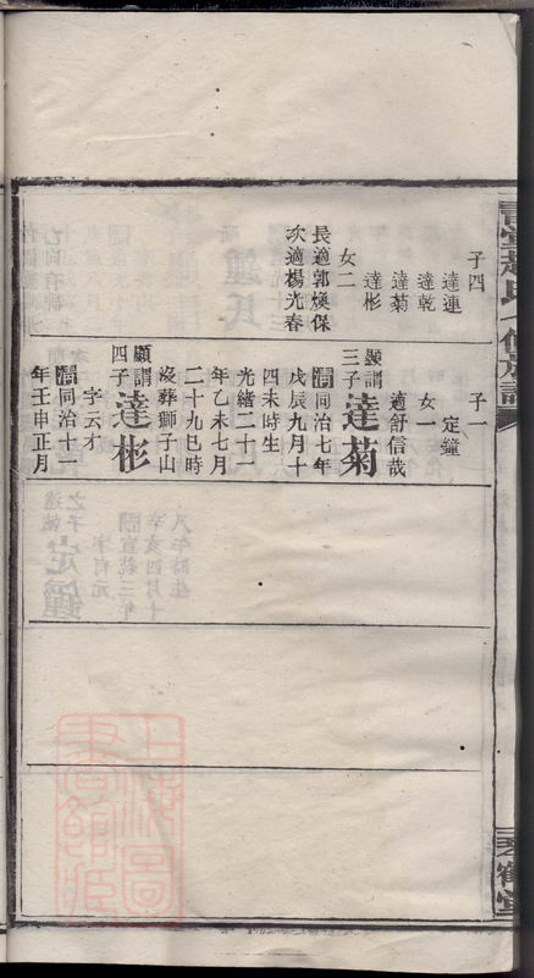 子四
達連
達乾
達菊
達彬
女二
長適郭煥保
次適楊光春
子一
定鐘
女一
適舒信哉
顯謂
三子
達菊
清同治七年
戊辰九月十
四未時生
光緒二十一
年乙未七月
二十九巳時
沒葬獅子山
顯謂
四子
達彬
字云才
清同治十一
年壬申正月
琴鶴堂